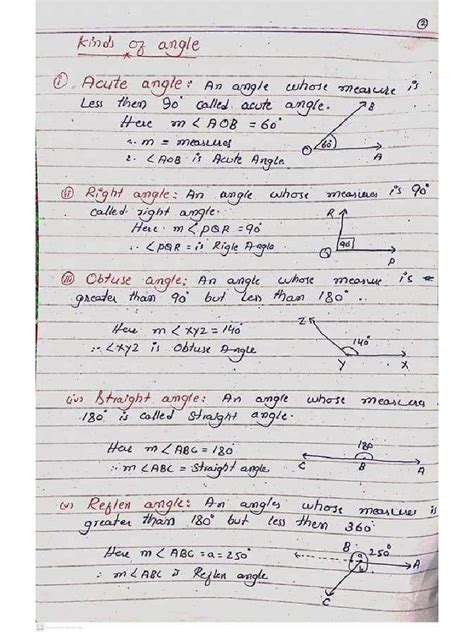 ②
Kinds of angle
(i) Acute angle: An angle whose measure is
Less then 90° called acute angle.
Here m∠AOB = 60°
∵ m = measures
∴ ∠AOB is Acute Angle
B
60°
O
A
(ii) Right angle: An angle whose measures is 90°
called right angle.
Here m∠PQR = 90°
∴ ∠PQR = is Rigle Angle
R
90°
Q
P
(iii) Obtuse angle: An angle whose measure is
greater than 90° but less than 180°..
Here m∠XYZ = 140°
∴ ∠XYZ is Obtuse Angle
Z
140°
Y
X
(iv) Straight angle: An angle whose measures
180° is called straight angle.
Here m∠ABC = 180°
∴ m∠ABC = straight angle
180°
C
B
A
(v) Reflen angle: An angles whose measures is
greater than 180° but less then 360°
Here m∠ABC = a = 250°
∴ m∠ABC is Reflen angle
B
a
250°
A
b
C